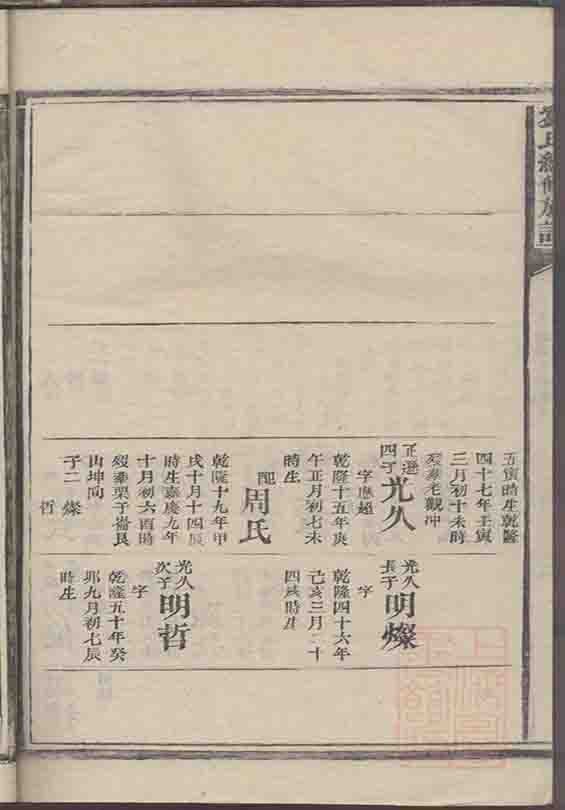 氏續修族譜
五寅時生乾隆
四十七年壬寅
三月初十未時
歿葬老觀冲
正選四子
光久
字應超
乾隆十五年庚
午正月初七未
時生
配周氏
乾隆十九年甲
戌十月十四辰
時生嘉慶九年
十月初六酉時
歿葬栗子崙艮
山坤向
子二 燦
哲
光久長子
明燦
字
乾隆四十六年
己亥三月二十
四亥時生
光久次子
明哲
字
乾隆五十年癸
卯九月初七辰
時生